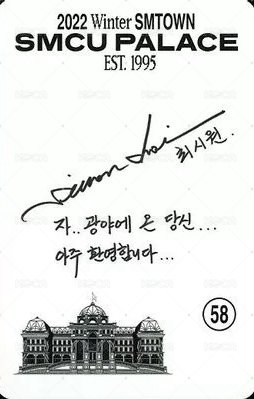 2022 Winter SMTOWN
SMCU PALACE
EST. 1995
Siwon Choi
최시원.
자.. 광야에 온 당신...
아주 환영합니다...
58